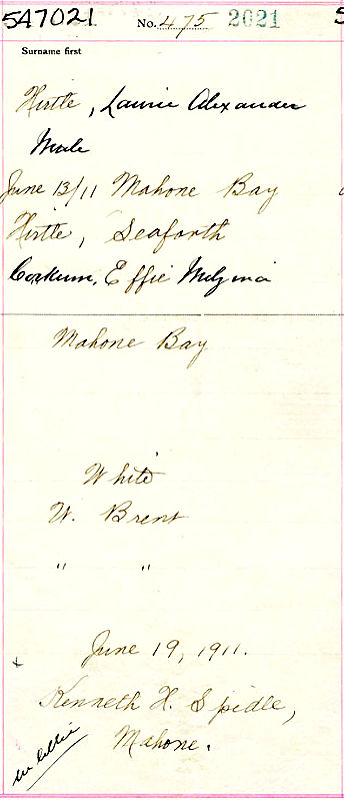 547021 No. 475 2021
Surname first
Hirtle, Laurie Alexander
Male
June 13/11 Mahone Bay
Hirtle, Seaforth
Corkum, Effie
Mahone Bay
White
W. Brent
" "
June 19, 1911.
Kenneth H. Spidle,
Mahone.